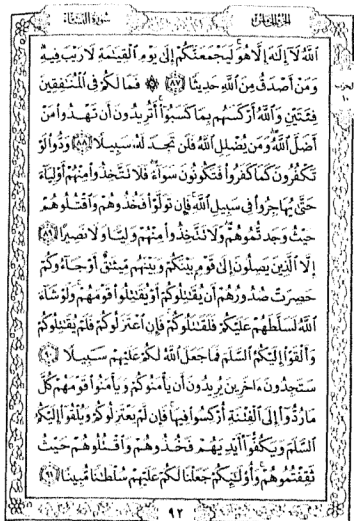 الجزء الخامس
سورة النساء
ٱللَّهُ لَآ إِلَٰهَ إِلَّا هُوَۚ لَيَجۡمَعَنَّكُمۡ إِلَىٰ يَوۡمِ ٱلۡقِيَٰمَةِ لَا رَيۡبَ فِيهِۗ
وَمَنۡ أَصۡدَقُ مِنَ ٱللَّهِ حَدِيثٗا ﴿٨٧﴾ ۞ فَمَا لَكُمۡ فِي ٱلۡمُنَٰفِقِينَ
فِئَتَيۡنِ وَٱللَّهُ أَرۡكَسَهُم بِمَا كَسَبُوٓاْۚ أَتُرِيدُونَ أَن تَهۡدُواْ مَنۡ
أَضَلَّ ٱللَّهُۖ وَمَن يُضۡلِلِ ٱللَّهُ فَلَن تَجِدَ لَهُۥ سَبِيلٗا ﴿٨٨﴾ وَدُّواْ لَوۡ
تَكۡفُرُونَ كَمَا كَفَرُواْ فَتَكُونُونَ سَوَآءٗۖ فَلَا تَتَّخِذُواْ مِنۡهُمۡ أَوۡلِيَآءَ
حَتَّىٰ يُهَاجِرُواْ فِي سَبِيلِ ٱللَّهِۚ فَإِن تَوَلَّوۡاْ فَخُذُوهُمۡ وَٱقۡتُلُوهُمۡ
حَيۡثُ وَجَدتُّمُوهُمۡۖ وَلَا تَتَّخِذُواْ مِنۡهُمۡ وَلِيّٗا وَلَا نَصِيرًا ﴿٨٩﴾
إِلَّا ٱلَّذِينَ يَصِلُونَ إِلَىٰ قَوۡمِۭ بَيۡنَكُمۡ وَبَيۡنَهُم مِّيثَٰقٌ أَوۡ جَآءُوكُمۡ
حَصِرَتۡ صُدُورُهُمۡ أَن يُقَٰتِلُوكُمۡ أَوۡ يُقَٰتِلُواْ قَوۡمَهُمۡۚ وَلَوۡ شَآءَ
ٱللَّهُ لَسَلَّطَهُمۡ عَلَيۡكُمۡ فَلَقَٰتَلُوكُمۡۚ فَإِنِ ٱعۡتَزَلُوكُمۡ فَلَمۡ يُقَٰتِلُوكُمۡ
وَأَلۡقَوۡاْ إِلَيۡكُمُ ٱلسَّلَمَ فَمَا جَعَلَ ٱللَّهُ لَكُمۡ عَلَيۡهِمۡ سَبِيلٗا ﴿٩٠﴾
سَتَجِدُونَ ءَاخَرِينَ يُرِيدُونَ أَن يَأۡمَنُوكُمۡ وَيَأۡمَنُواْ قَوۡمَهُمۡ كُلَّ
مَا رُدُّوٓاْ إِلَى ٱلۡفِتۡنَةِ أُرۡكِسُواْ فِيهَاۚ فَإِن لَّمۡ يَعۡتَزِلُوكُمۡ وَيُلۡقُوٓاْ إِلَيۡكُمُ
ٱلسَّلَمَ وَيَكُفُّوٓاْ أَيۡدِيَهُمۡ فَخُذُوهُمۡ وَٱقۡتُلُوهُمۡ حَيۡثُ
ثَقِفۡتُمُوهُمۡۚ وَأُوْلَٰٓئِكُمۡ جَعَلۡنَا لَكُمۡ عَلَيۡهِمۡ سُلۡطَٰنٗا مُّبِينٗا ﴿٩١﴾
الحزب
١٠
٩٢